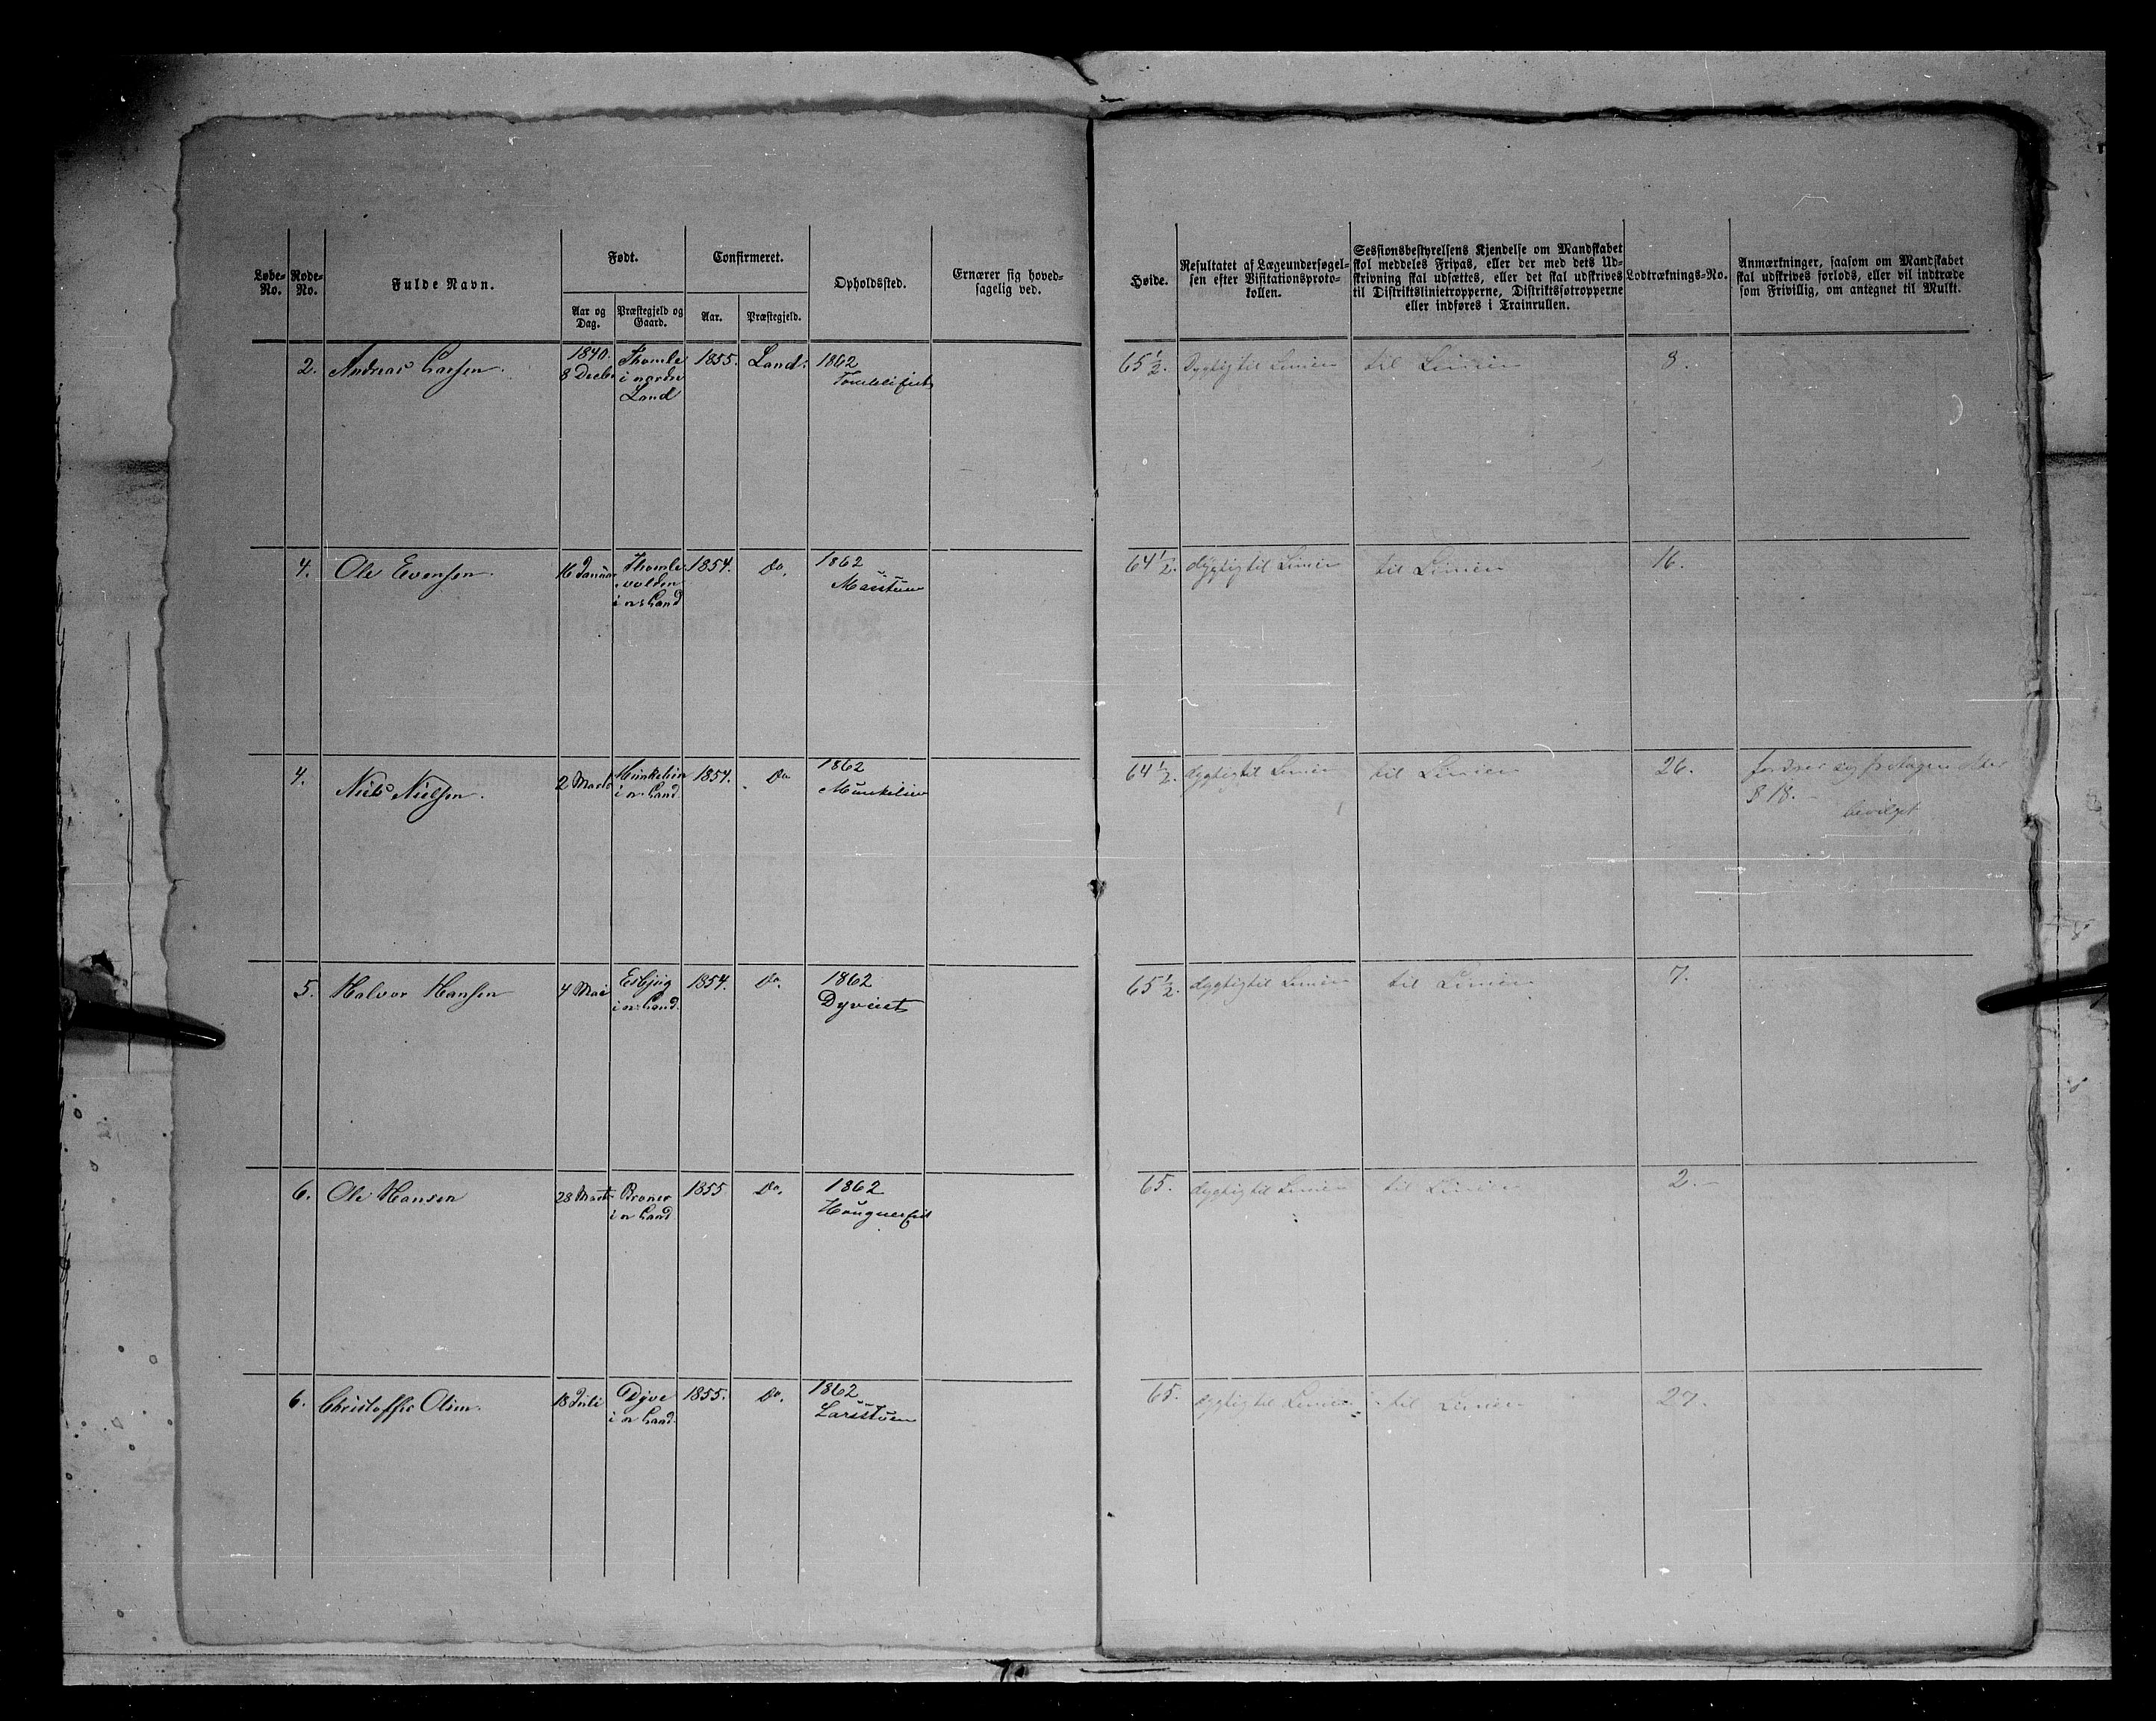 Løbe-No.
Rode-No.
Fulde Navn.
Født.
Aar og Dag.
Præstegjeld og Gaard.
Confirmeret.
Aar.
Præstegjeld.
Opholdssted.
Ernærer sig hoved-
sagelig ved.
Høide.
Resultatet af Lægeundersøgel-
sen efter Visitationsproto-
kollen.
Sessionsbestyrelsens Kjendelse om Mandskabet
skal meddeles Fripas, eller der med dets Ud-
skrivning skal udsættes, eller det skal udskrives
til Distriktslinietropperne, Distriktssøtropperne
eller indføres i Trainrullen.
Lodtræknings-No.
Anmærkninger, saasom om Mandskabet
skal udskrives forlods, eller vil indtræde
som Frivillig, om antegnet til Mulkt.
2. Andreas Larsen. 1840. 8 Decbr Thomle i nordre Land 1855. Land. 1862
65 1/2. Dygtig til Linien til Linien 8.
4. Ole Evensen. 16 Januar Thomle-volden i n: Land 1854. Do. 1862
64 1/2. dygtig til Linien til Linien 16.
4. Niels Nielsen. 2 Marts Munkelien i n: Land 1854. Do 1862 Munkelien
64 1/2. dygtig til Linien til Linien 26. fordrer sig fritagen efter
§ 18. -
bevilget
5. Halvor Hansen 4 Mai i n: Land. 1854. Do. 1862
65 1/2. dygtig til Linien til Linien 7.
6. Ole Hansen 28 Marts i n Land 1855 Do. 1862
65. dygtig til Linien til Linien 2. -
6. Christoffer Olsen. 18 Juli Dyve i n Land. 1855. Do. 1862 Larsstuen
65. dygtig til Linien til Linien 27.